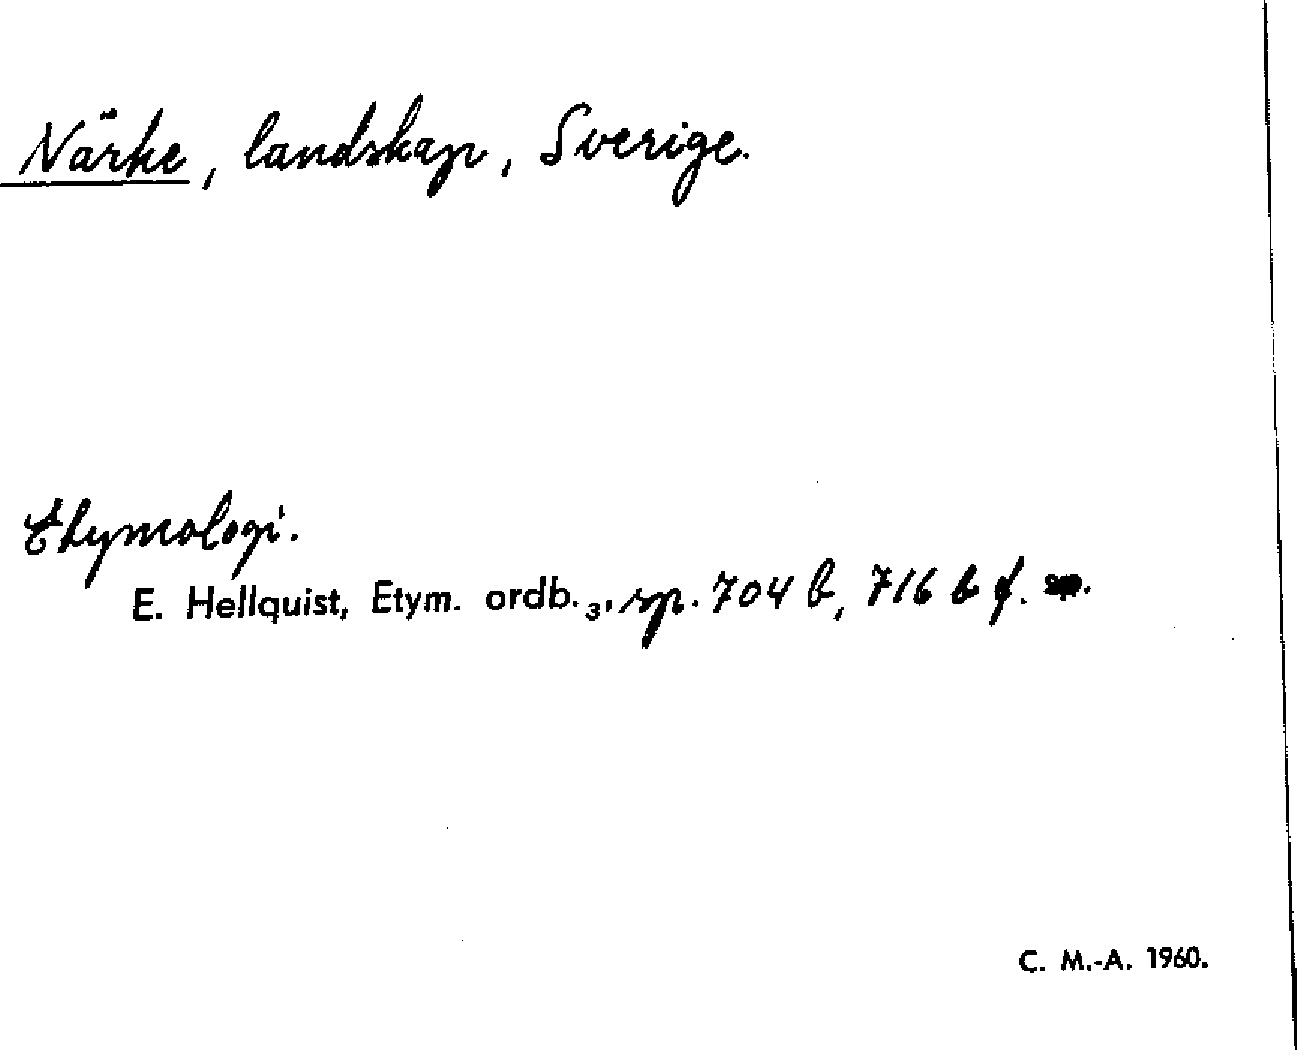 Närke, landskap, Sverige.
Etymologi.
E. Hellquist, Etym. ordb. 3, sp. 704 b, 716 b f.
C. M.-A. 1960.